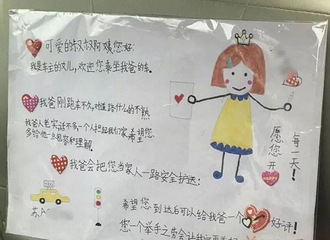 可爱的叔叔阿姨您好:
我是车主的女儿,欢迎您乘坐我爸的车。
我爸刚跑车不久,对道路什么的不熟
我爸人老实话不多,一个人担起我们家希望您
多给他一点宽容和理解
我爸会把您当家人一路安全护送;
希望您到达后可以给我爸一个
好评!
您一个举手之劳会让我
愿您开
HAPPY
每一天!